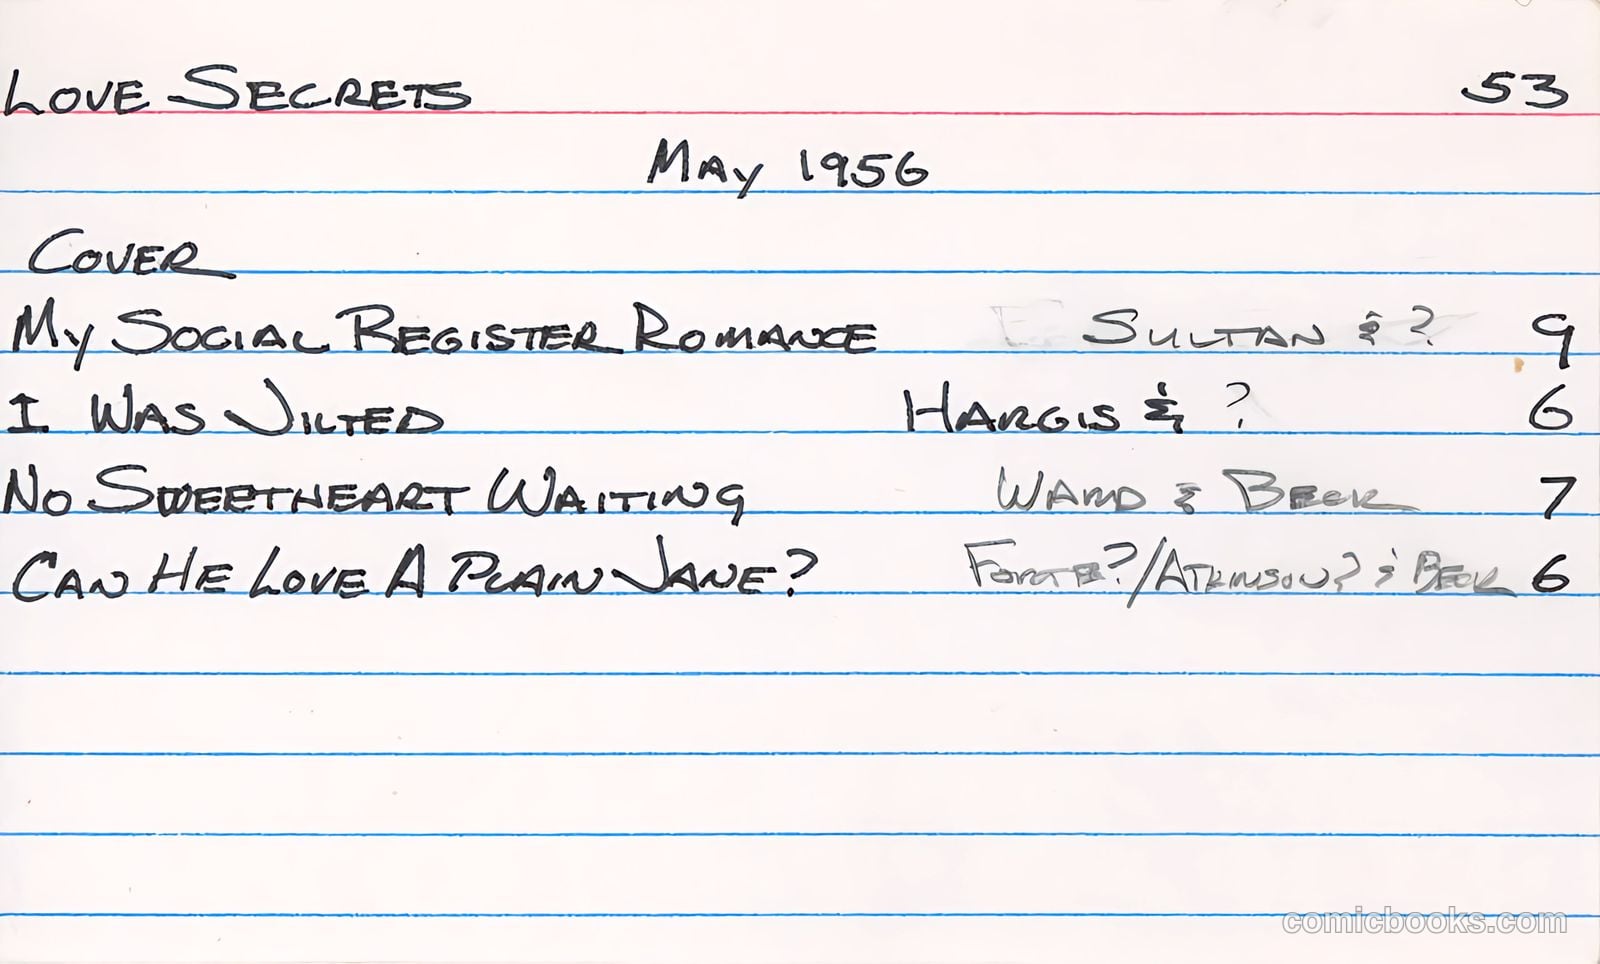 LOVE SECRETS 53
MAY 1956
COVER
MY SOCIAL REGISTER ROMANCE SULTAN & ? 9
I WAS JILTED HARGIS & ? 6
NO SWEETHEART WAITING WARD & BECK 7
CAN HE LOVE A PLAIN JANE? FORTE?/ATKINSON? & BECK 6
comicbooks.com